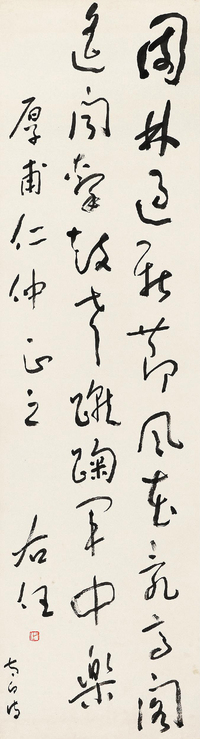 園林過新節風花亂高閣
遙聞擊鼓聲蹴鞠軍中樂
厚甫仁仲正之
右任